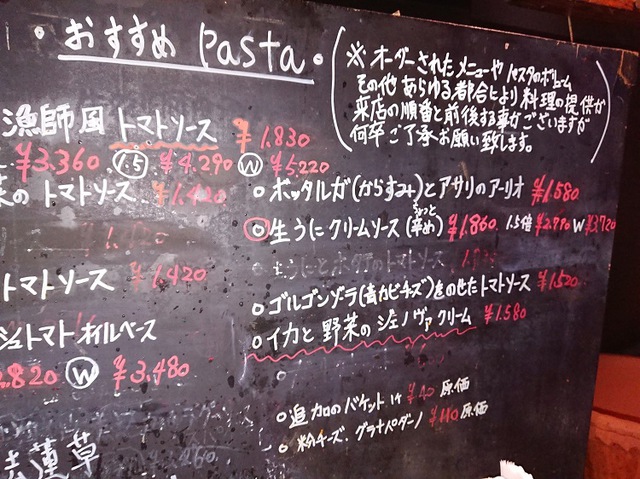 ・おすすめ Pasta・
※ オーダーされたメニューや パスタのボリューム
その他 あらゆる都合により料理の提供が
来店の順番と前後する事がございますが
何卒ご了承お願い致します。
漁師風 トマトソース ¥1.830
¥3.360 1.5 ¥4.290 W ¥5.220
菜の トマトソース ¥1.420
トマトソース ¥1.420
シュトマト オイルベース
2.820 W ¥3.480
蓮草
○ ボッタルガ(からすみ)とアサリのアーリオ ¥1.580
○ 生うにクリームソース(ちょっと辛め) ¥1.860 1.5倍 ¥2.790 W ¥3.720
生うにとホタテのトマトソース
○ ゴルゴンゾーラ(青カビチーズ)をのせたトマトソース ¥1.520
○ イカと野菜のジェノヴァクリーム ¥1.580
○ 追加のバケット 1ヶ ¥40 原価
○ 粉チーズ、グラナパダーノ ¥110 原価